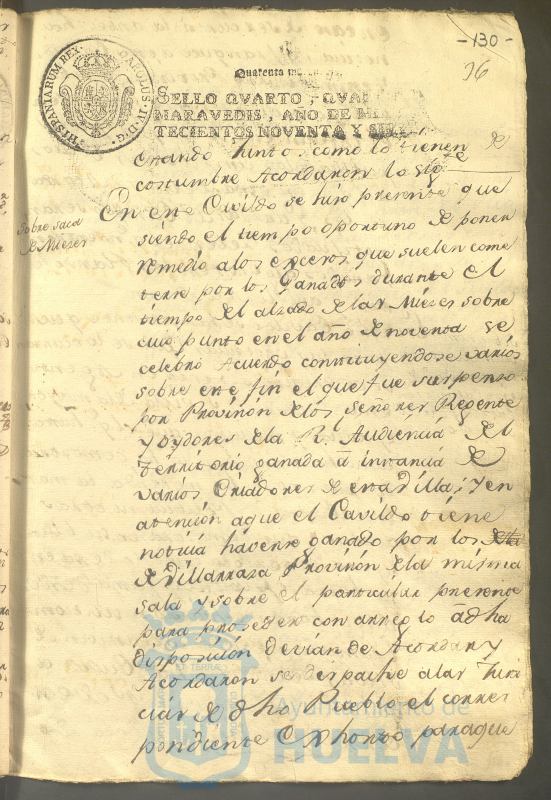 -130-
96
CAROLUS·IV·D·G·HISPANIARUM REX
Quarenta
SELLO QVARTO, QVA
MARAVEDIS, AÑO DE MI
TECIENTOS NOVENTA Y
Estando junto, como lo tienen de
costumbre Acordaron lo sigte
Sobre saca
de Miezes
En este Cavildo se hizo presente que
siendo el tiempo oportuno de poner
remedio a los excesos que suelen come
terse por los Ganados durante el
tiempo del alzado de las Miezes sobre
cuio punto en el año de noventa se
celebró Acuerdo constituyendose varios
sobre este fin el que fue suspenso
por Provision de los Señores Regente
y oydores de la R. Audiencia del
territorio ganada â instancia de
varios Criadores de esta Villa; y en
atencion a que el Cavildo tiene
noticia haverse ganado por los
de Villarrasa Provision de la misma
sala y sobre el particular presente
para proseder con arreglo â dha
disposicion devian de Acordar y
Acordaron se despache a las Justi
cias de dho Pueblo el corres
pondiente Exhorto para que
Ayuntamiento de
HUELVA